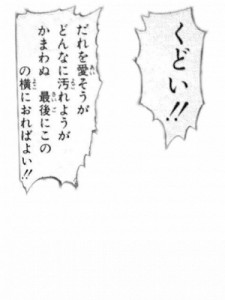 くどい!!
だれを愛そうが
どんなに汚れようが
かまわぬ 最後にこの
の横におればよい!!